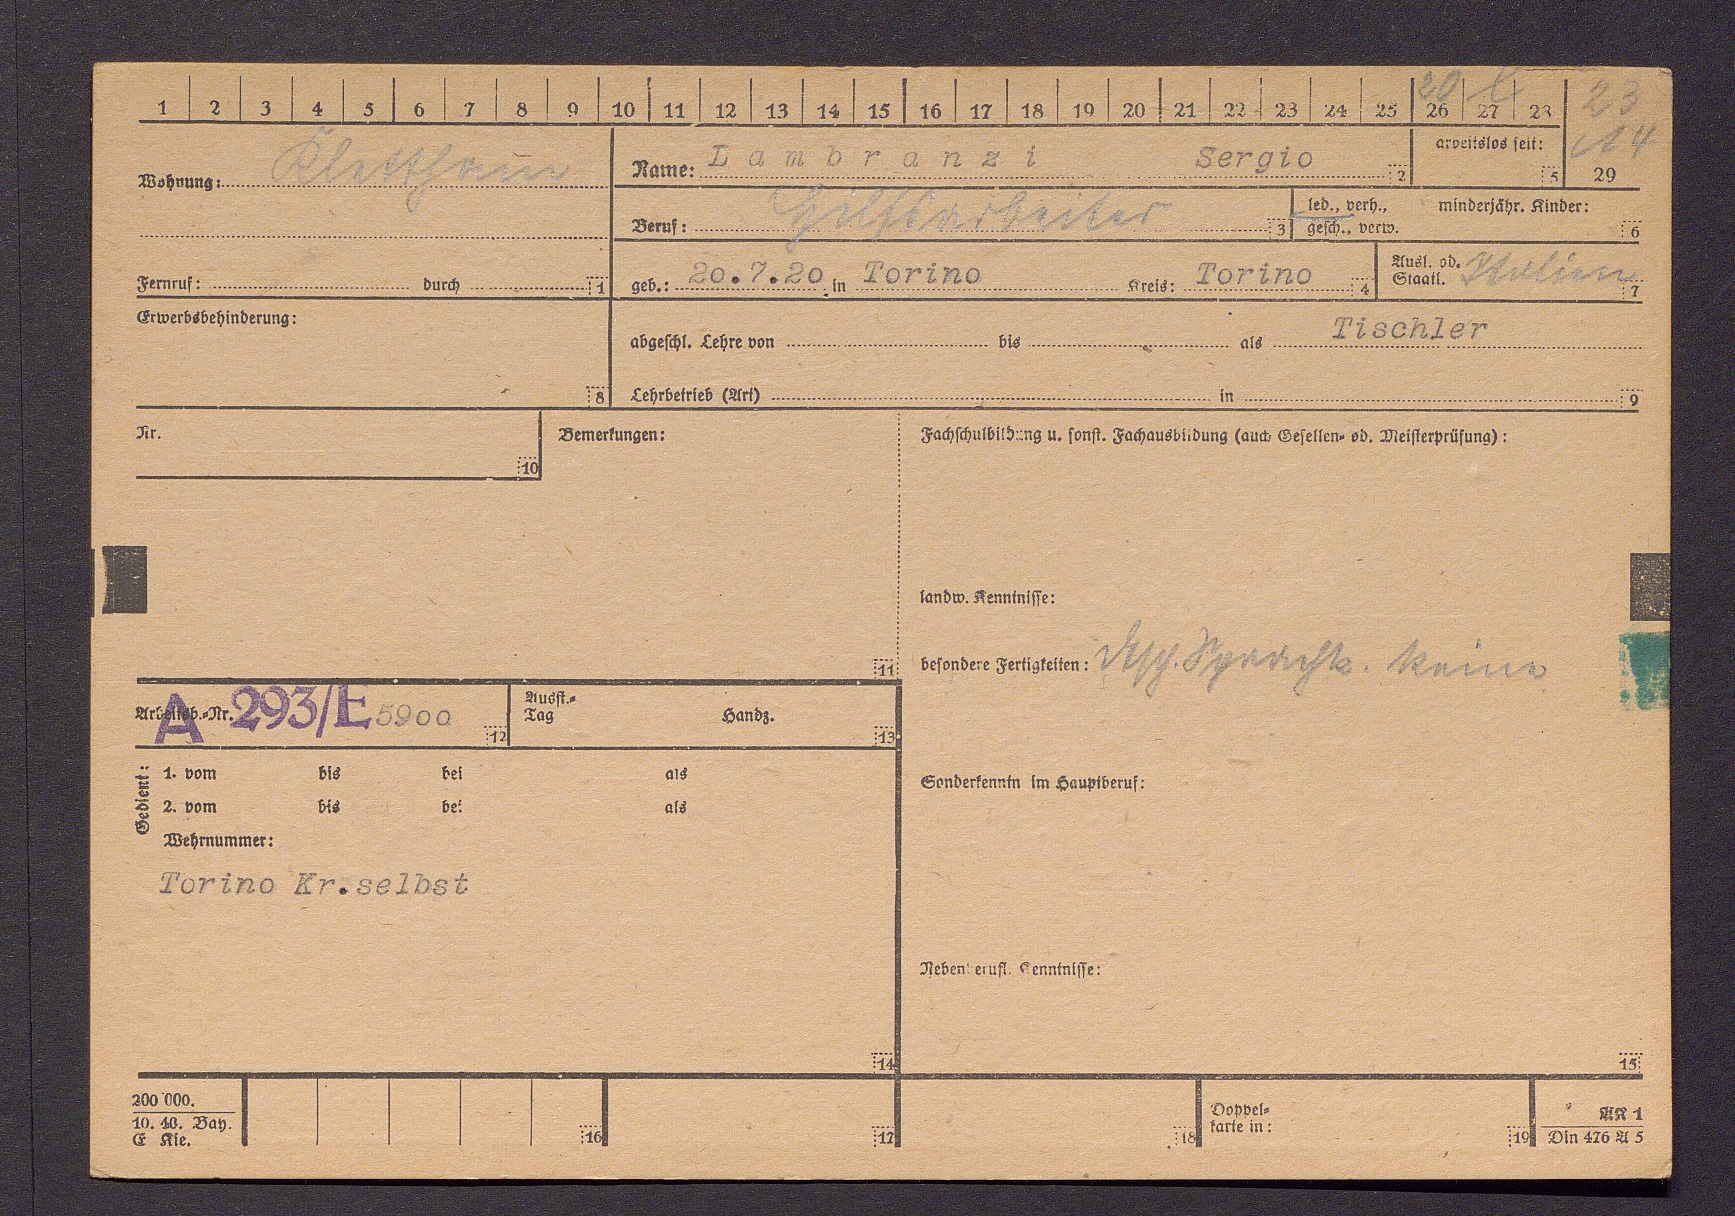 1 2 3 4 5 6 7 8 9 10 11 12 13 14 15 16 17 18 19 20 21 22 23 24 25 26 27 28
20 23
Wohnung: Klettham
Name: Lambranzi Sergio 2
arbeitslos seit: 5
14
29
Beruf: Hilfsarbeiter 3
led., verh., gesch., verw.
minderjähr. Kinder: 6
Fernruf: durch 1
geb.: 20.7.20 in Torino Kreis: Torino 4
Ausl. od. Staatl. Italien 7
Erwerbsbehinderung: 8
abgeschl. Lehre von bis als Tischler
Lehrbetrieb (Art) in 9
Nr. 10
Bemerkungen: 11
Fachschulbildung u. sonst. Fachausbildung (auch Gesellen- od. Meisterprüfung):
landw. Kenntnisse:
besondere Fertigkeiten: dtsch. Sprachk. keine
Arbeitsb.-Nr. A 293/E 5900 12
Ausst.-Tag Handz. 13
Gedient:
1. vom bis bei als
2. vom bis bei als
Wehrnummer:
Torino Kr.selbst
14
Sonderkenntn im Hauptberuf:
Nebenberufl. Kenntnisse:
15
200 000.
10. 40. Bay.
E Kie.
16 17 18
Doppel-
karte in: 19
AK 1
Din 476 A 5